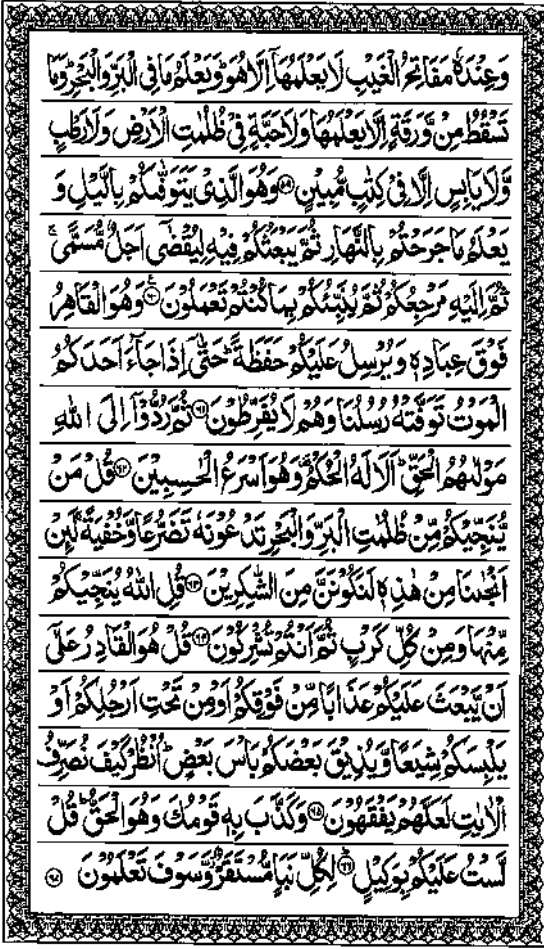 وَعِنْدَهٗ مَفَاتِحُ الْغَيْبِ لَا يَعْلَمُهَاۤ اِلَّا هُوَ ؕ وَيَعْلَمُ مَا فِى الْبَرِّ وَالْبَحْرِ ؕ وَمَا
تَسْقُطُ مِنْ وَّرَقَةٍ اِلَّا يَعْلَمُهَا وَلَا حَبَّةٍ فِىْ ظُلُمٰتِ الْاَرْضِ وَلَا رَطْبٍ
وَّلَا يَابِسٍ اِلَّا فِىْ كِتٰبٍ مُّبِيْنٍ ۝۵۹ وَهُوَ الَّذِىْ يَتَوَفّٰٮكُمْ بِالَّيْلِ وَ
يَعْلَمُ مَا جَرَحْتُمْ بِالنَّهَارِ ثُمَّ يَبْعَثُكُمْ فِيْهِ لِيُقْضٰٓى اَجَلٌ مُّسَمًّى ۚ
ثُمَّ اِلَيْهِ مَرْجِعُكُمْ ثُمَّ يُنَبِّئُكُمْ بِمَا كُنْتُمْ تَعْمَلُوْنَ ۝۶۰ وَهُوَ الْقَاهِرُ
فَوْقَ عِبَادِهٖ وَيُرْسِلُ عَلَيْكُمْ حَفَظَةً ؕ حَتّٰٓى اِذَا جَآءَ اَحَدَكُمُ
الْمَوْتُ تَوَفَّتْهُ رُسُلُنَا وَهُمْ لَا يُفَرِّطُوْنَ ۝۶۱ ثُمَّ رُدُّوْۤا اِلَى اللّٰهِ
مَوْلٰٮهُمُ الْحَقِّ ؕ اَلَا لَهُ الْحُكْمُ ۫ وَهُوَ اَسْرَعُ الْحٰسِبِيْنَ ۝۶۲ قُلْ مَنْ
يُّنَجِّيْكُمْ مِّنْ ظُلُمٰتِ الْبَرِّ وَالْبَحْرِ تَدْعُوْنَهٗ تَضَرُّعًا وَّخُفْيَةً ۚ لَٮِٕنْ
اَنْجٰٮنَا مِنْ هٰذِهٖ لَنَكُوْنَنَّ مِنَ الشّٰكِرِيْنَ ۝۶۳ قُلِ اللّٰهُ يُنَجِّيْكُمْ
مِّنْهَا وَمِنْ كُلِّ كَرْبٍ ثُمَّ اَنْتُمْ تُشْرِكُوْنَ ۝۶۴ قُلْ هُوَ الْقَادِرُ عَلٰٓى
اَنْ يَّبْعَثَ عَلَيْكُمْ عَذَابًا مِّنْ فَوْقِكُمْ اَوْ مِنْ تَحْتِ اَرْجُلِكُمْ اَوْ
يَلْبِسَكُمْ شِيَعًا وَّيُذِيْقَ بَعْضَكُمْ بَاْسَ بَعْضٍ ؕ اُنْظُرْ كَيْفَ نُصَرِّفُ
الْاٰيٰتِ لَعَلَّهُمْ يَفْقَهُوْنَ ۝۶۵ وَكَذَّبَ بِهٖ قَوْمُكَ وَهُوَ الْحَقُّ ؕ قُلْ
لَّسْتُ عَلَيْكُمْ بِوَكِيْلٍ ؕ ۝۶۶ لِكُلِّ نَبَاٍ مُّسْتَقَرٌّ ؗ وَّسَوْفَ تَعْلَمُوْنَ ۝۶۷